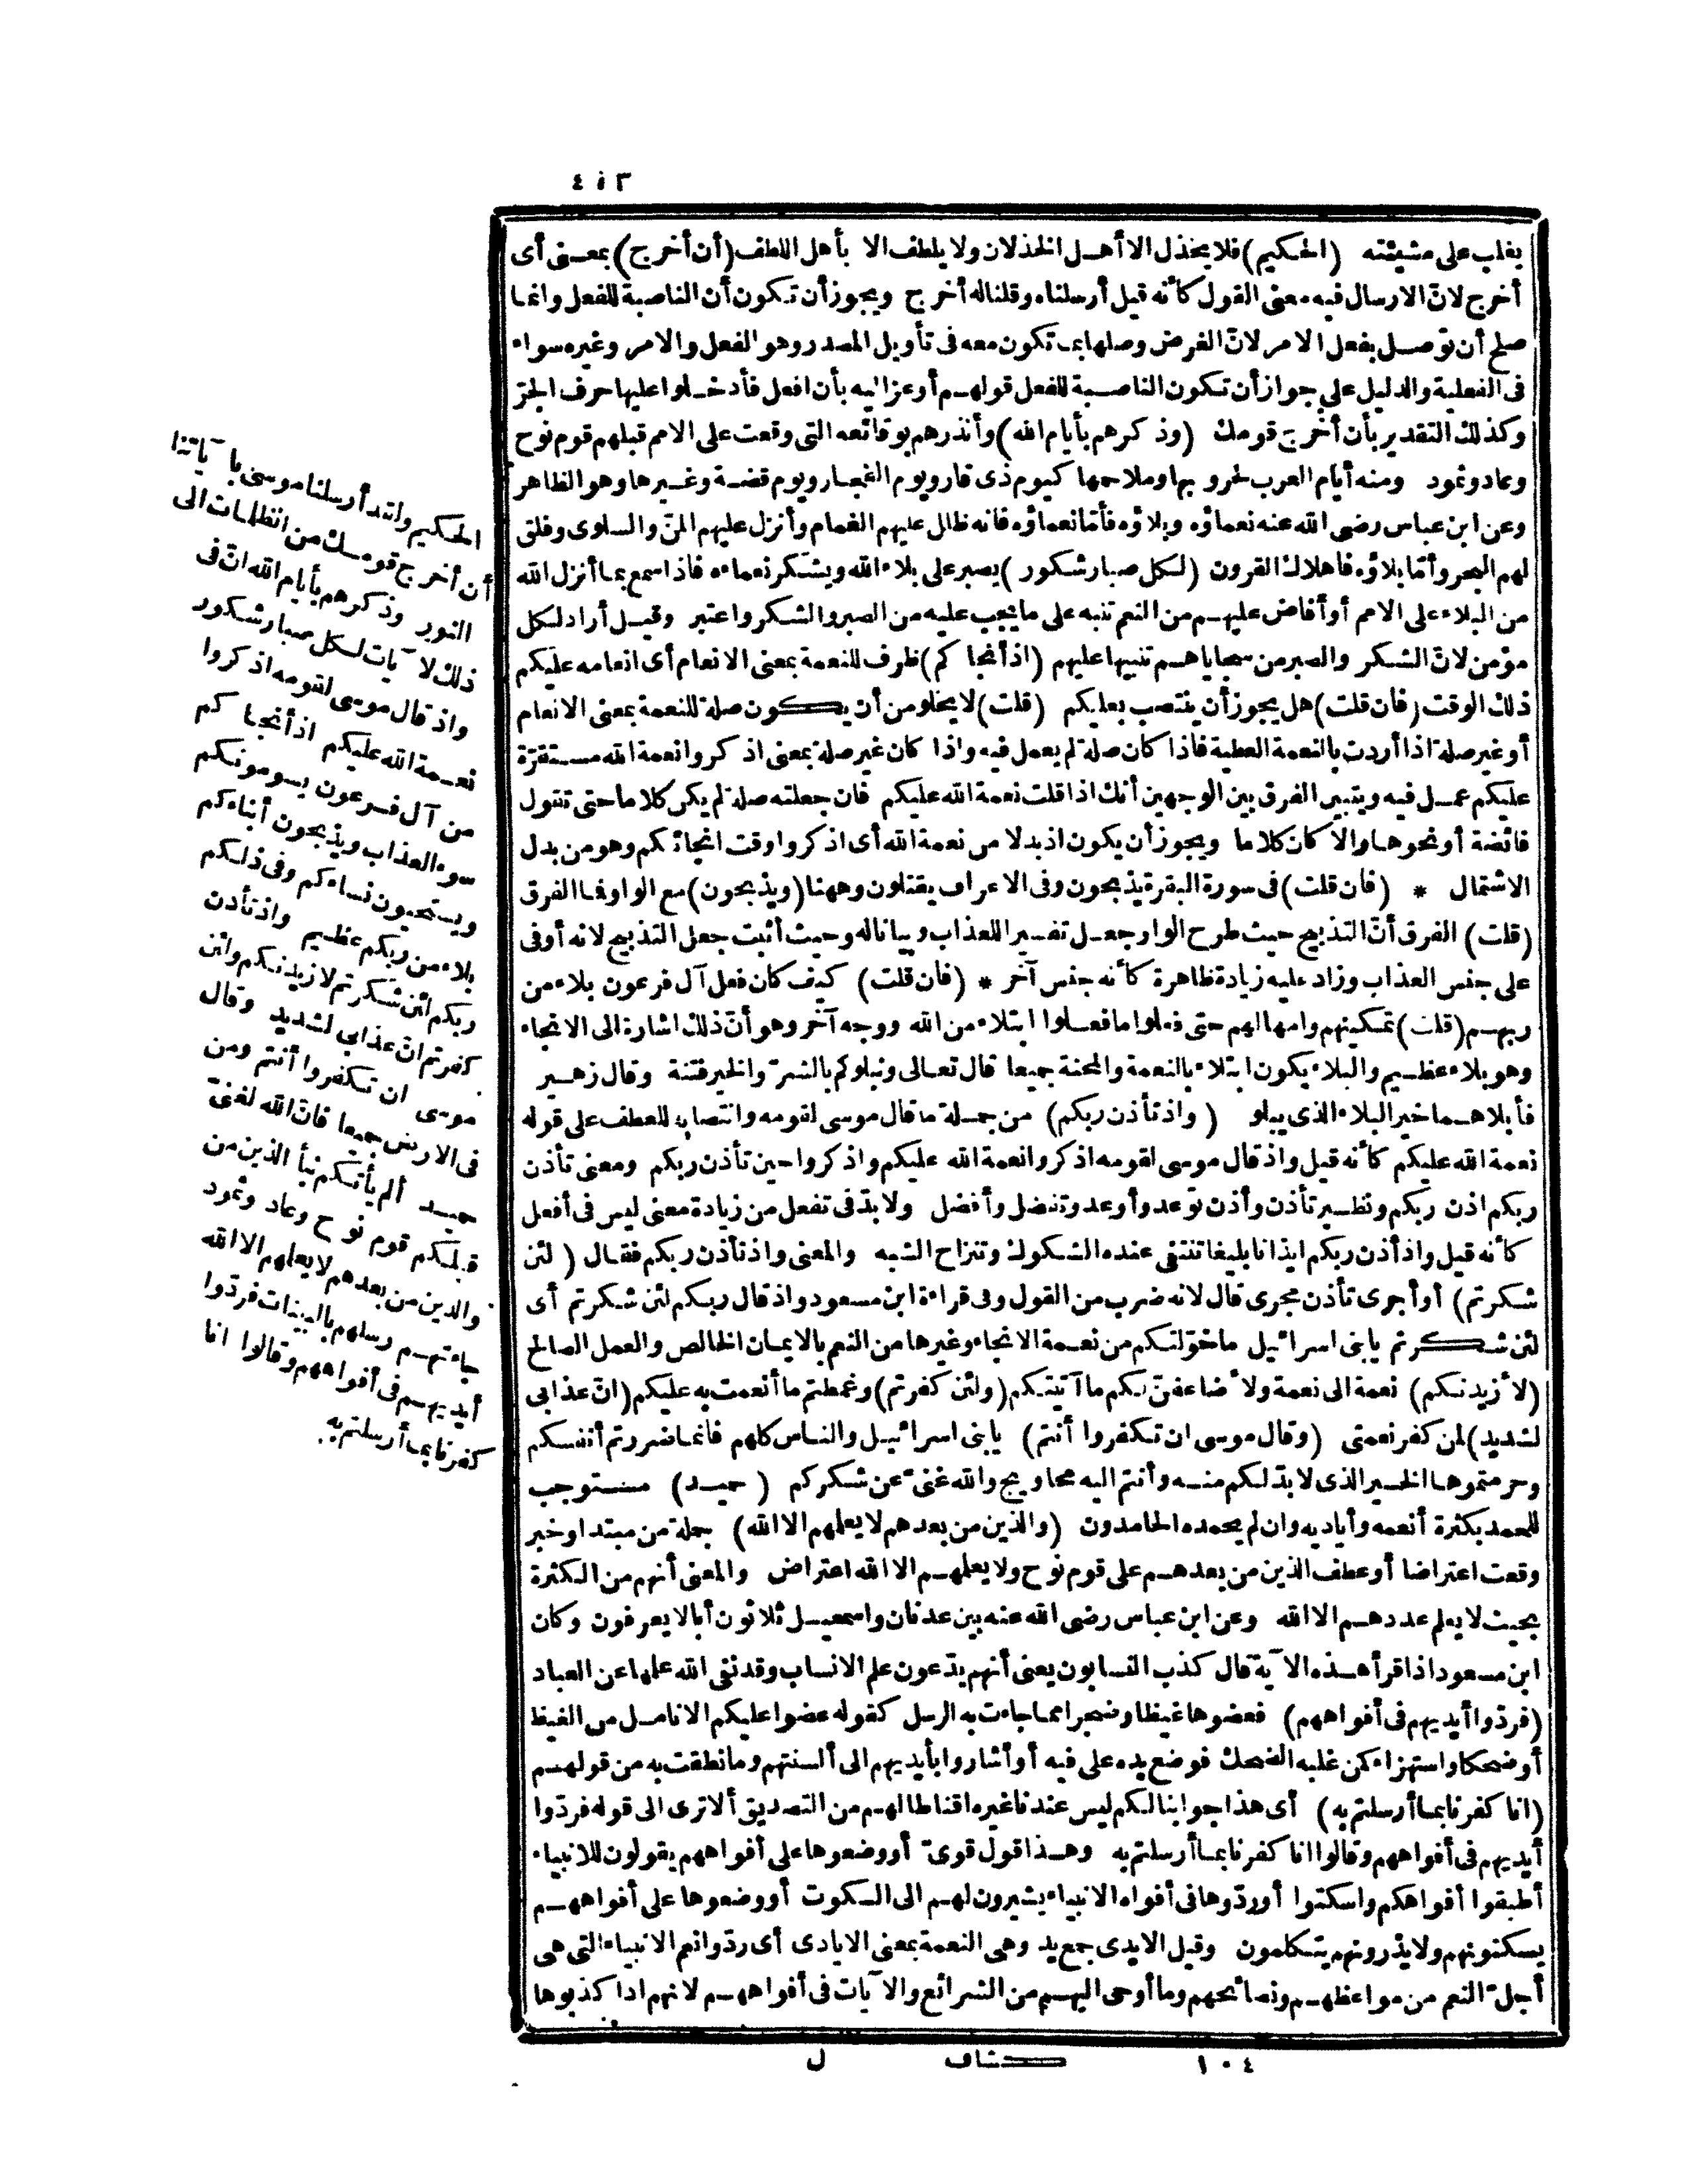 ٤٠٣
يغلب على مشيئته (الحكيم) فلا يخذل الا أهل الخذلان ولا يلطف الا بأهل اللطف (أن أخرج) بمعنى أى
أخرج لانّ الارسال فيه معنى القول كأنه قيل أرسلناه وقلنا له أخرج ويجوز أن تكون أن الناصبة للفعل وانما
صلح أن توصل بفعل الامر لانّ الغرض وصلها بما تكون معه فى تأويل المصدر وهو الفعل والامر وغيره سواء
فى الفعلية والدليل على جواز أن تكون الناصبة للفعل قولهم أوعز اليه بأن افعل فأدخلوا عليها حرف الجرّ
وكذلك التقدير بأن أخرج قومك (وذكرهم بأيام الله) وأنذرهم بوقائعه التى وقعت على الامم قبلهم قوم نوح
وعاد وثمود ومنه أيام العرب لحروبها وملاحمها كيوم ذى قار ويوم الفجار ويوم قضة وغيرها وهو الظاهر
وعن ابن عباس رضى الله عنه نعماؤه وبلاؤه فأمّا نعماؤه فانه ظلل عليهم الغمام وأنزل عليهم المنّ والسلوى وفلق
لهم البحر وأمّا بلاؤه فاهلاك القرون (لكل صبار شكور) يصبر على بلاء الله ويشكر نعماءه فاذا سمع بما أنزل الله
من البلاء على الامم أو أفاض عليهم من النعم تنبه على ما يجب عليه من الصبر والشكر واعتبر وقيل أراد لكل
مؤمن لانّ الشكر والصبر من سجاياهم تنبيها عليهم (اذ أنجاكم) ظرف للنعمة بمعنى الانعام أى انعامه عليكم
ذلك الوقت (فان قلت) هل يجوز أن ينتصب بعليكم (قلت) لا يخلو من أن يكون صلة للنعمة بمعنى الانعام
أو غير صلة اذا أردت بالنعمة العطية فاذا كان صلة لم يعمل فيه واذا كان غير صلة بمعنى اذكروا نعمة الله مستقرّة
عليكم عمل فيه ويتبين الفرق بين الوجهين أنك اذا قلت نعمة الله عليكم فان جعلته صلة لم يكن كلاما حتى تقول
فائضة أو نحوها والا كان كلاما ويجوز أن يكون اذ بدلا من نعمة الله أى اذكروا وقت انجائكم وهو من بدل
الاشتمال * (فان قلت) فى سورة البقرة يذبحون وفى الاعراف يقتلون وههنا (ويذبحون) مع الواو فما الفرق
(قلت) الفرق أنّ التذبيح حيث طرح الواو جعل تفسيرا للعذاب وبيانا له وحيث أثبت جعل التذبيح لانه أوفى
على جنس العذاب وزاد عليه زيادة ظاهرة كأنه جنس آخر * (فان قلت) كيف كان فعل آل فرعون بلاء من
ربهم (قلت) تمكينهم وامهالهم حتى فعلوا ما فعلوا ابتلاء من الله ووجه آخر وهو أنّ ذلك اشارة الى الانجاء
وهو بلاء عظيم والبلاء يكون ابتلاء بالنعمة والمحنة جميعا قال تعالى ونبلوكم بالشرّ والخير فتنة وقال زهير
فأبلاهما خير البلاء الذى يبلو (واذ تأذن ربكم) من جملة ما قال موسى لقومه وانتصابه للعطف على قوله
نعمة الله عليكم كأنه قيل واذ قال موسى لقومه اذكروا نعمة الله عليكم واذكروا حين تأذن ربكم ومعنى تأذن
ربكم اذن ربكم ونظير تأذن وأذن توعد وأوعد وتفضل وأفضل ولا بدّ فى تفعل من زيادة معنى ليس فى أفعل
كأنه قيل واذ أذن ربكم ايذانا بليغا تنتفى عنده الشكوك وتنزاح الشبه والمعنى واذ تأذن ربكم فقال (لئن
شكرتم) أو أجرى تأذن مجرى قال لانه ضرب من القول وفى قراءة ابن مسعود واذ قال ربكم لئن شكرتم أى
لئن شكرتم يا بنى اسرائيل ما خوّلتكم من نعمة الانجاء وغيرها من النعم بالايمان الخالص والعمل الصالح
(لأزيدنكم) نعمة الى نعمة ولأضاعفنّ لكم ما آتيتكم (ولئن كفرتم) وغمطتم ما أنعمت به عليكم (انّ عذابى
لشديد) لمن كفر نعمتى (وقال موسى ان تكفروا أنتم) يا بنى اسرائيل والناس كلهم فانما ضررتم أنفسكم
وحرمتموها الخير الذى لا بدّ لكم منه وأنتم اليه محاويج والله غنىّ عن شكركم (حميد) مستوجب
للحمد بكثرة أنعمه وأياديه وان لم يحمده الحامدون (والذين من بعدهم لا يعلمهم الا الله) جملة من مبتدا وخبر
وقعت اعتراضا أو عطف الذين من بعدهم على قوم نوح ولا يعلمهم الا الله اعتراض والمعنى أنهم من الكثرة
بحيث لا يعلم عددهم الا الله وعن ابن عباس رضى الله عنه بين عدنان واسمعيل ثلاثون أبا لا يعرفون وكان
ابن مسعود اذا قرأ هذه الآية قال كذب النسابون يعنى أنهم يدّعون علم الانساب وقد نفى الله علمها عن العباد
(فردّوا أيديهم فى أفواههم) فعضوها غيظا وضجرا مما جاءت به الرسل كقوله عضوا عليكم الانامل من الغيظ
أو ضحكا واستهزاء كمن غلبه الضحك فوضع يده على فيه أو أشاروا بأيديهم الى ألسنتهم وما نطقت به من قولهم
(انا كفرنا بما أرسلتم به) أى هذا جوابنا لكم ليس عندنا غيره اقناطا لهم من التصديق ألا ترى الى قوله فردّوا
أيديهم فى أفواههم وقالوا انا كفرنا بما أرسلتم به وهذا قول قوىّ أو وضعوها على أفواههم يقولون للانبياء
أطبقوا أفواهكم واسكتوا أو ردّوها فى أفواه الانبياء يشيرون لهم الى السكوت أو وضعوها على أفواههم
يسكتونهم ولا يذرونهم يتكلمون وقيل الايدى جمع يد وهى النعمة بمعنى الايادى أى ردّوا نعم الانبياء التى هى
أجلّ النعم من مواعظهم ونصائحهم وما أوحى اليهم من الشرائع والآيات فى أفواههم لانهم اذا كذبوها
الحكيم ولقد أرسلنا موسى بآياتنا
أن أخرج قومك من الظلمات الى
النور وذكرهم بأيام الله انّ فى
ذلك لآيات لكل صبار شكور
واذ قال موسى لقومه اذكروا
نعمة الله عليكم اذ أنجاكم
من آل فرعون يسومونكم
سوء العذاب ويذبحون أبناءكم
ويستحيون نساءكم وفى ذلكم
بلاء من ربكم عظيم واذ تأذن
ربكم لئن شكرتم لازيدنكم ولئن
كفرتم انّ عذابى لشديد وقال
موسى ان تكفروا أنتم ومن
فى الارض جميعا فانّ الله لغنىّ
حميد ألم يأتكم نبأ الذين من
قبلكم قوم نوح وعاد وثمود
والذين من بعدهم لا يعلمهم الا الله
جاءتهم رسلهم بالبينات فردّوا
أيديهم فى أفواههم وقالوا انا
كفرنا بما أرسلتم به
١٠٤ كشاف ل